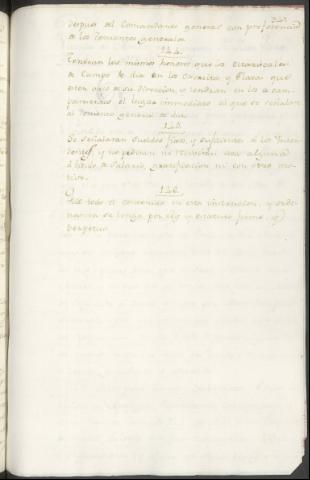 despues del Comandante general con preferencia
a los Tenientes generales.
144.
Tendran los mismos honores que los Mariscales
de Campo de dia en los Exercitos, y Plazas que
esten
y tendran en los a cam-
pamentos el lugar immediato al que se señalare
al Teniente general de dia.
145.
Se señalaran Sueldos fixos, y suficientes a los Inten-
dentes, y no podran
a titulo de Salario, gratificacion ni con otro mo-
tivo.
146.
todo el contenido en esta instruccion, y orde-
nanza se tenga por ley y estatuto firme, y
perpetuo